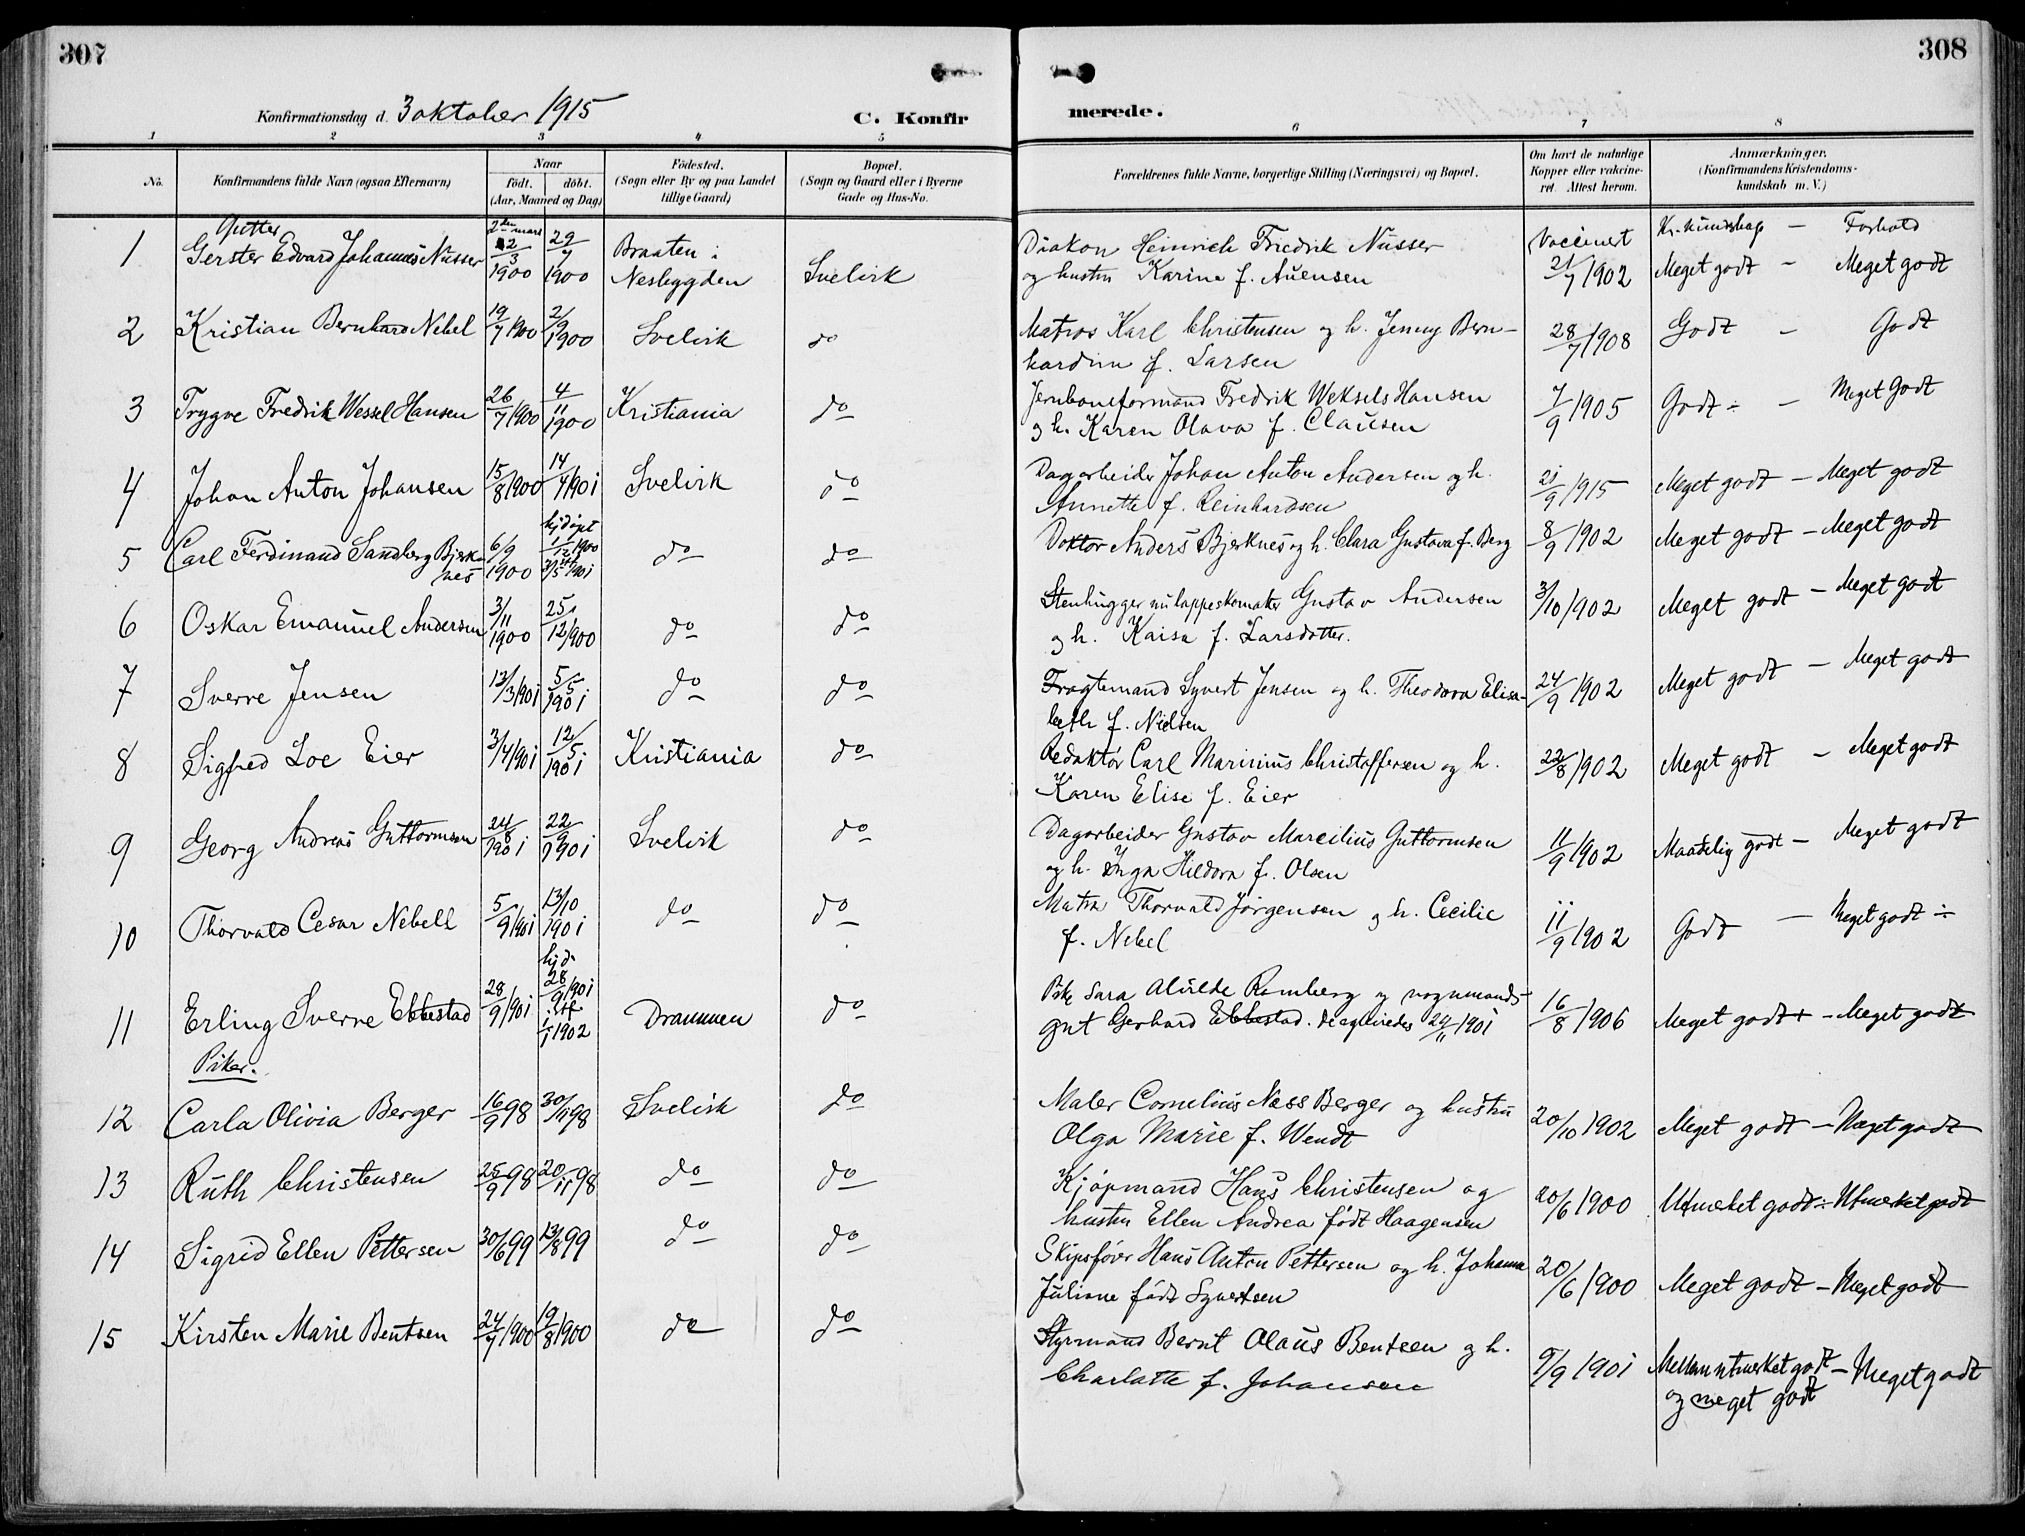 307
308
Konfirmationsdag d. 3 oktober 1915
C. Konfir
merede.
1 2 3 4 5 6 7 8
No. Konfirmandens fulde Navn (ogsaa Efternavn) Naar født. døbt. (Aar, Maaned og Dag) Fødested. (Sogn eller By og paa Landet tillige Gaard) Bopæl. (Sogn og Gaard eller i Byerne Gade og Hus-No. Forældrenes fulde Navne, borgerlige Stilling (Næringsvei) og Bopæl. Om havt de naturlige Kopper eller vakcineret. Attest herom. Anmærkninger. (Konfirmandens Kristendomskundskab m. V.)
Gutter
Kr. kundskap – Forhold
1 Gerster Edvard Johannes Nusser 2den mars 2/3 1900 29/7 1900 Braaten i Nesbygden Svelvik Diakon Heinrich Friedrik Nusser vaccinert
og hustru Karine f. Auensen 21/7 1902 Meget godt – Meget godt
2 Kristian Bernhard Nebel 19/7 1900 2/9 1900 Svelvik do Matros Karl Christensen og h. Jenny Bern-
hardine f. Larsen 28/7 1908 Godt – Godt
3 Trygve Fredrik Wessel Hansen 26/7 1900 4/11 1900 Kristiania do Jernbaneformand Fredrik Weksels Hansen
og h. Karen Olava f. Clausen 7/9 1905 Godt ÷ – Meget Godt
4 Johan Anton Johansen 15/8 1900 14/4 1901 Svelvik do Dagarbeider Johan Anton Andersen og h.
Annette f. Reinhardsen 21/9 1915 Meget godt – Meget godt
5 Carl Ferdinand Sandberg Bjerknes 6/9 1900 hjdøpt 1/12 1900 do do Doktor Anders Bjerknes og h. Clara Gustava f. Berg 8/9 1902 Meget godt – Meget godt
6 Oskar Emanuel Andersen 3/11 1900 25/12 1900 do do Stenhugger nu lappeskomaker Gustav Andersen
og h. Kaisa f. Larsdotter. 3/10 1902 Meget godt – Meget godt
7 Sverre Jensen 13/3 1901 5/5 1901 do do Fragtemand Syvert Jensen og h. Theodora Elisa-
beth f. Nielsen 24/9 1902 Meget godt – Meget godt
8 Sigfred Loe Eier 3/4 1901 12/5 1901 Kristiania do Redaktør Carl Marinius Christoffersen og h.
Karen Elise f. Eier 22/8 1902 Meget godt – Meget godt
9 Georg Andreas Guttormsen 24/8 1901 22/9 1901 Svelvik do Dagarbeider Gustav Marcilius Guttormsen
og h. Inga Hildora f. Olsen 11/9 1902 Maadelig godt – Meget godt
10 Thorvald Cesar Nebell 5/9 1901 13/10 1901 do do Matros Thorvald Jørgensen og h. Cecilie
f. Nebel 11/9 1902 Godt – Meget godt ÷
11 Erling Sverre Ebbestad 28/9 1901 hjd. 28/9 1901 stf. 1/1 1902 Drammen do Pike Sara Alvilde Ramberg og vognmands-
gut Gerhard Ebbestad. 24/11 1901 16/8 1906 Meget godt + – Meget godt
Piker.
12 Carla Olivia Berger 16/9 98 30/11 98 Svelvik do Maler Cornelius Næss Berger og hustru
Olga Marie f. Wendt 20/10 1902 Meget godt – Meget godt
13 Ruth Christensen 25/9 98 20/11 98 do do Kjøpmand Hans Christensen og
hustru Ellen Andrea født Haagensen 20/6 1900 Utmerket godt ÷ Utmerket godt
14 Sigrid Ellen Pettersen 30/6 99 13/8 99 do do Skipsfører Hans Anton Pettersen og h. Johanna
Juliane født Syvertsen 20/6 1900 Meget godt – Meget godt
15 Kirsten Marie Bentsen 24/7 1900 19/8 1900 do do Styrmand Bernt Olaus Bentsen og h.
Charlotte f. Johansen 5/9 1901 Mellem utmerket godt – Meget godt
og meget godt